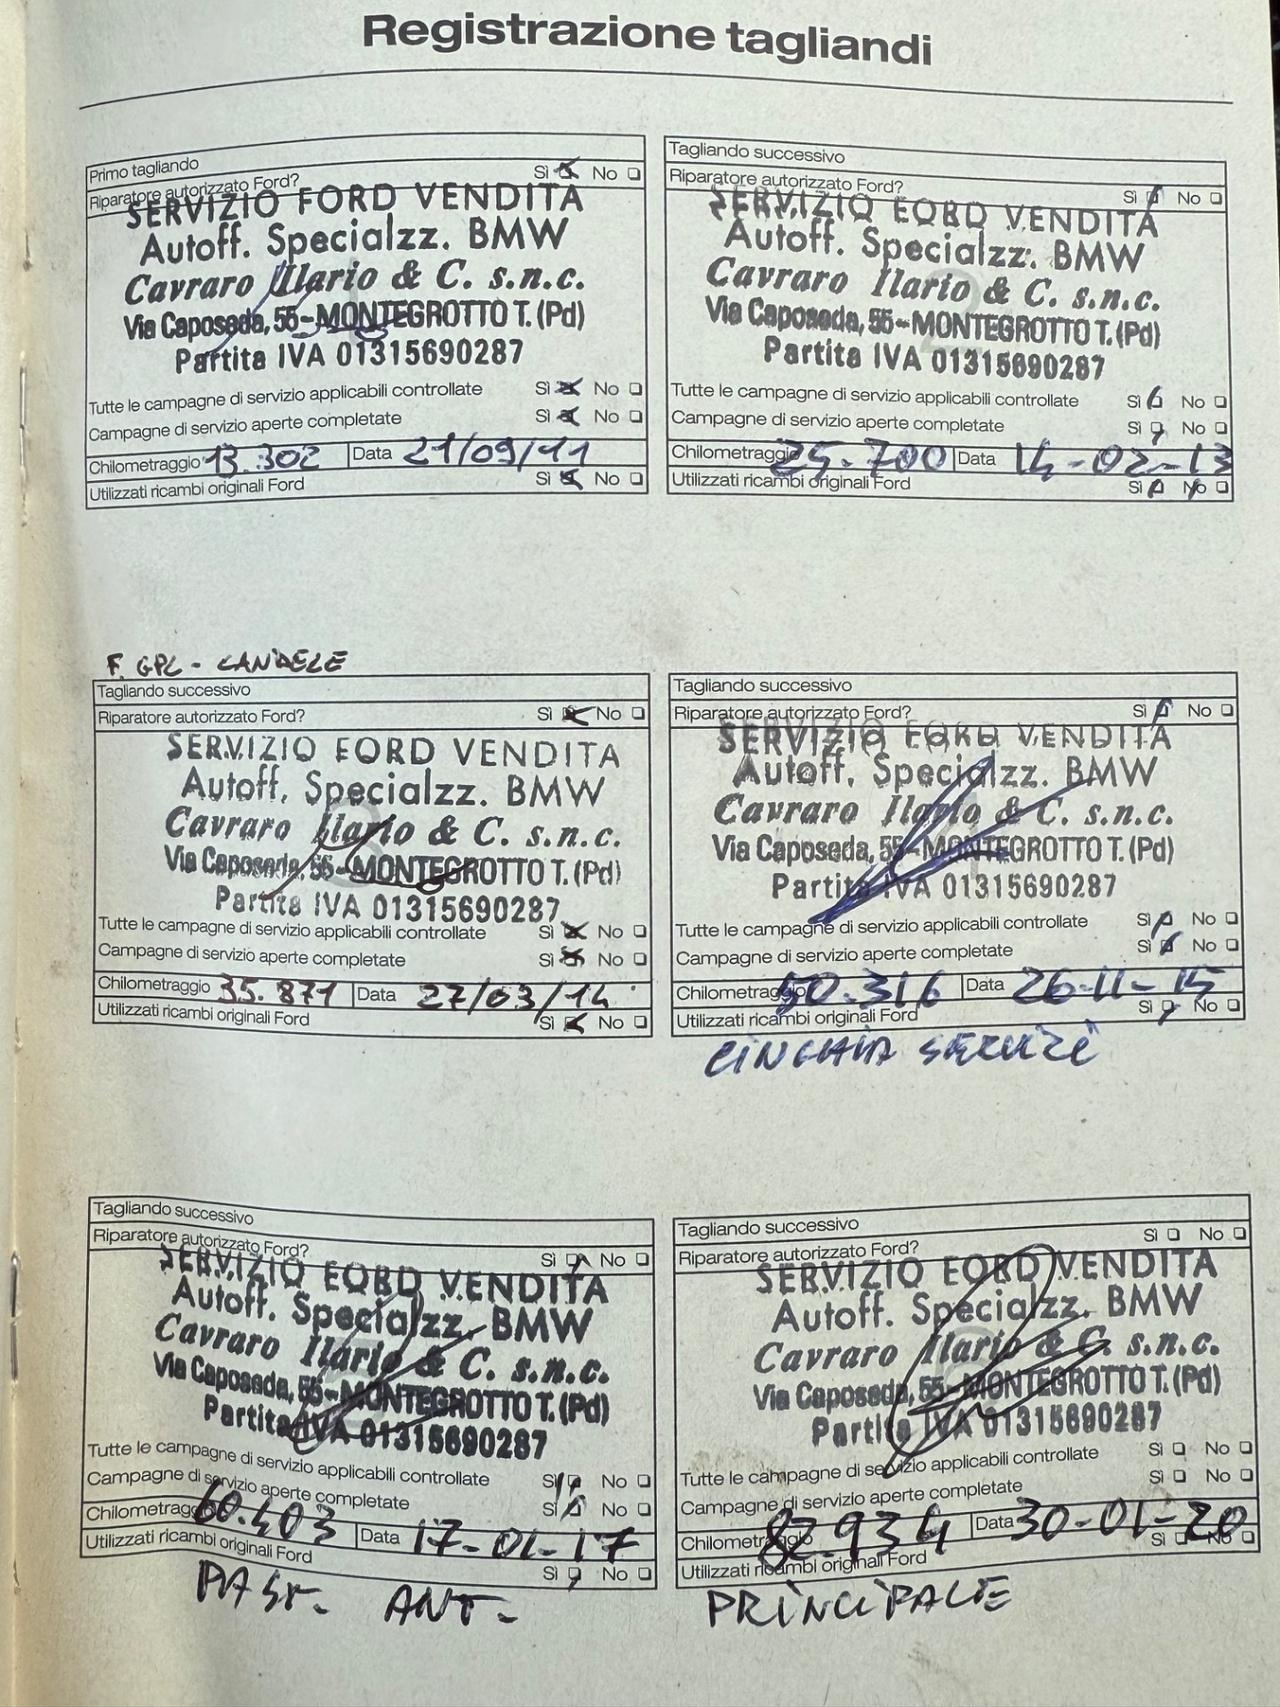 Registrazione tagliandi
Primo tagliando
Riparatore autorizzato Ford? Sì No
SERVIZIO FORD VENDITA
Autoff. Specialzz. BMW
Cavraro Ilario & C. s.n.c.
Via Caposeda, 55-MONTEGROTTO T. (Pd)
Partita IVA 01315690287
Tutte le campagne di servizio applicabili controllate Sì No
Campagne di servizio aperte completate Sì No
Chilometraggio 13.302 Data 21/09/11
Utilizzati ricambi originali Ford Sì No
Tagliando successivo
Riparatore autorizzato Ford? Sì No
SERVIZIO FORD VENDITA
Autoff. Specialzz. BMW
Cavraro Ilario & C. s.n.c.
Via Caposeda, 55-MONTEGROTTO T. (Pd)
Partita IVA 01315690287
2
Tutte le campagne di servizio applicabili controllate Sì No
Campagne di servizio aperte completate Sì No
Chilometraggio 25.700 Data 14-02-13
Utilizzati ricambi originali Ford Sì No
F. GPL - CANDELE
Tagliando successivo
Riparatore autorizzato Ford? Sì No
SERVIZIO FORD VENDITA
Autoff. Specialzz. BMW
Cavraro Ilario & C. s.n.c.
Via Caposeda, 55-MONTEGROTTO T. (Pd)
Partita IVA 01315690287
3
Tutte le campagne di servizio applicabili controllate Sì No
Campagne di servizio aperte completate Sì No
Chilometraggio 35.871 Data 27/03/14
Utilizzati ricambi originali Ford Sì No
Tagliando successivo
Riparatore autorizzato Ford? Sì No
SERVIZIO FORD VENDITA
Autoff. Specialzz. BMW
Cavraro Ilario & C. s.n.c.
Via Caposeda, 55-MONTEGROTTO T. (Pd)
Partita IVA 01315690287
Tutte le campagne di servizio applicabili controllate Sì No
Campagne di servizio aperte completate Sì No
Chilometraggio 50.316 Data 26-11-15
Utilizzati ricambi originali Ford Sì No
CINGHIA SERVIZI
Tagliando successivo
Riparatore autorizzato Ford? Sì No
SERVIZIO FORD VENDITA
Autoff. Specialzz. BMW
Cavraro Ilario & C. s.n.c.
Via Caposeda, 55-MONTEGROTTO T. (Pd)
Partita IVA 01315690287
Tutte le campagne di servizio applicabili controllate Sì No
Campagne di servizio aperte completate Sì No
Chilometraggio 60.403 Data 17-01-17
Utilizzati ricambi originali Ford Sì No
PAST. ANT.
Tagliando successivo
Riparatore autorizzato Ford? Sì No
SERVIZIO FORD VENDITA
Autoff. Specialzz. BMW
Cavraro Ilario & C. s.n.c.
Via Caposeda, 55-MONTEGROTTO T. (Pd)
Partita IVA 01315690287
Tutte le campagne di servizio applicabili controllate Sì No
Campagne di servizio aperte completate Sì No
Chilometraggio 82.934 Data 30-01-20
Utilizzati ricambi originali Ford Sì No
PRINCIPALE